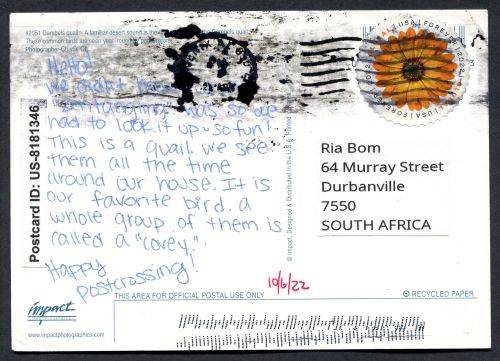 #2051 Gambels quail~ A familiar desert sound is the
These common birds are seen year-round
Photographer~
USA FOREVER 2022
Hello!
We didn't know
was so we
had to look it up - so fun!
This is a quail. We see
them all the time
around our house. It is
our favorite bird. A
whole group of them is
called a "covey."
Happy
postcrossing!
Postcard ID: US-8181346
© Impact, Designed & Distributed in the U.S. Printed
Ria Bom
64 Murray Street
Durbanville
7550
SOUTH AFRICA
10/6/22
impact
www.impactphotographics.com
THIS AREA FOR OFFICIAL POSTAL USE ONLY
RECYCLED PAPER